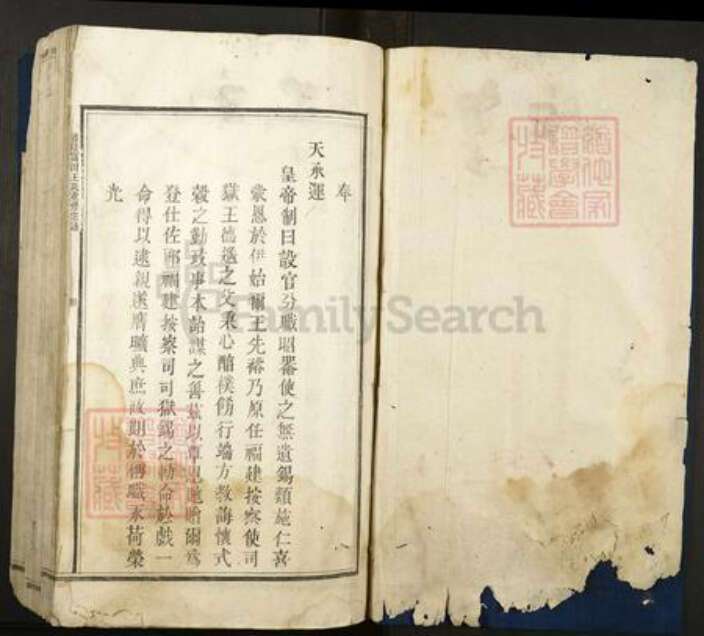 奉
天承運
皇帝制曰設官分職昭器使之無遺錫類施仁喜
蒙恩於伊始爾王先裕乃原任福建按察使司
獄王德遙之父秉心醇樸飭行端方教誨懷式
穀之勤政事本詒謀之善茲以覃恩馳贈爾為
登仕佐郎福建按察司司獄錫之勅命於戲一
命得以逮親遂膺曠典庶政期於懋職永荷榮
光
FamilySearch